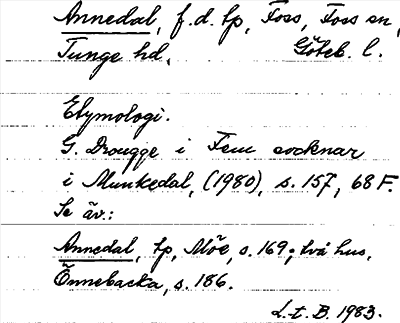 Annedal, f.d. lp, Foss, Foss sn,
Tunge hd, Göteb. l.
Etymologi.
G. Drougge i Fem socknar
i Munkedal, (1980), s. 157, 68 F.
Se äv.:
Annedal, lp, Möe, s. 169; två hus,
Önnebacka, s. 186.
L.t. B. 1983.